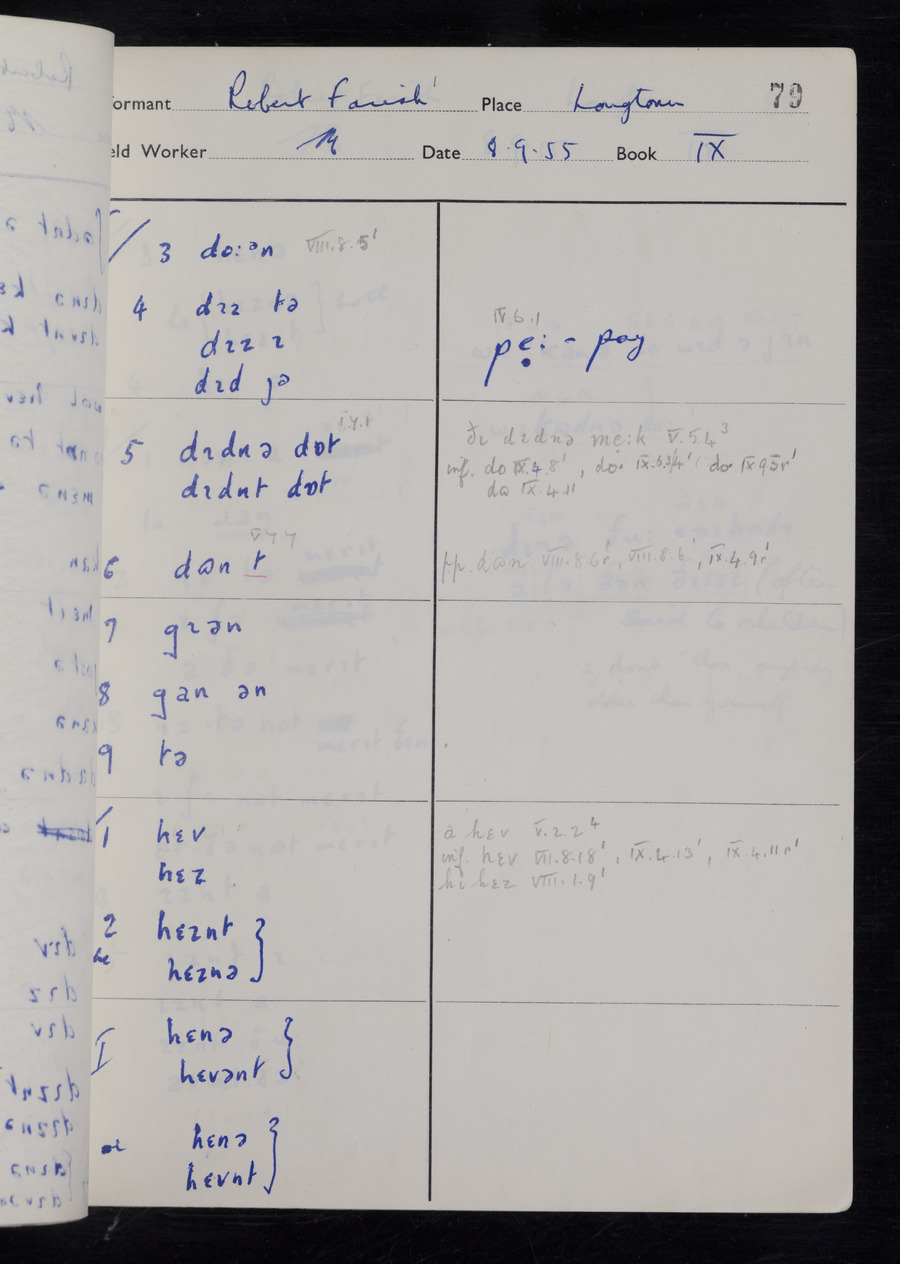 ormant Robert Farish Place Longtown 79
eld Worker Date 8.9.55 Book IX
3 do:ən VIII.8.5'
4 dɪz tə
dɪz ɪ
dɪd jə
IV.6.1
pẹ: - pay
5 dɪdnə dɒt
dɪdnt dɒt
ðɪ dɪdnə mẹ:k V.5.4³
inf. do IX.4.8'
dɷ IX.4.11
6 dɷn t
pp. dɷn VIII.8.6r', VIII.8.6', IX.4.9r'
7 gɪən
8 gan ən
9 tə
1 hɛv
hɛz
a hɛv V.2.2⁴
inf. hɛv VII.8.18', IX.4.13', IX.4.11r'
hi hɛz VIII.1.9'
2 hɛznt }
he hɛznə
I hɛnə }
hɛvənt
hɛnə }
hɛvnt